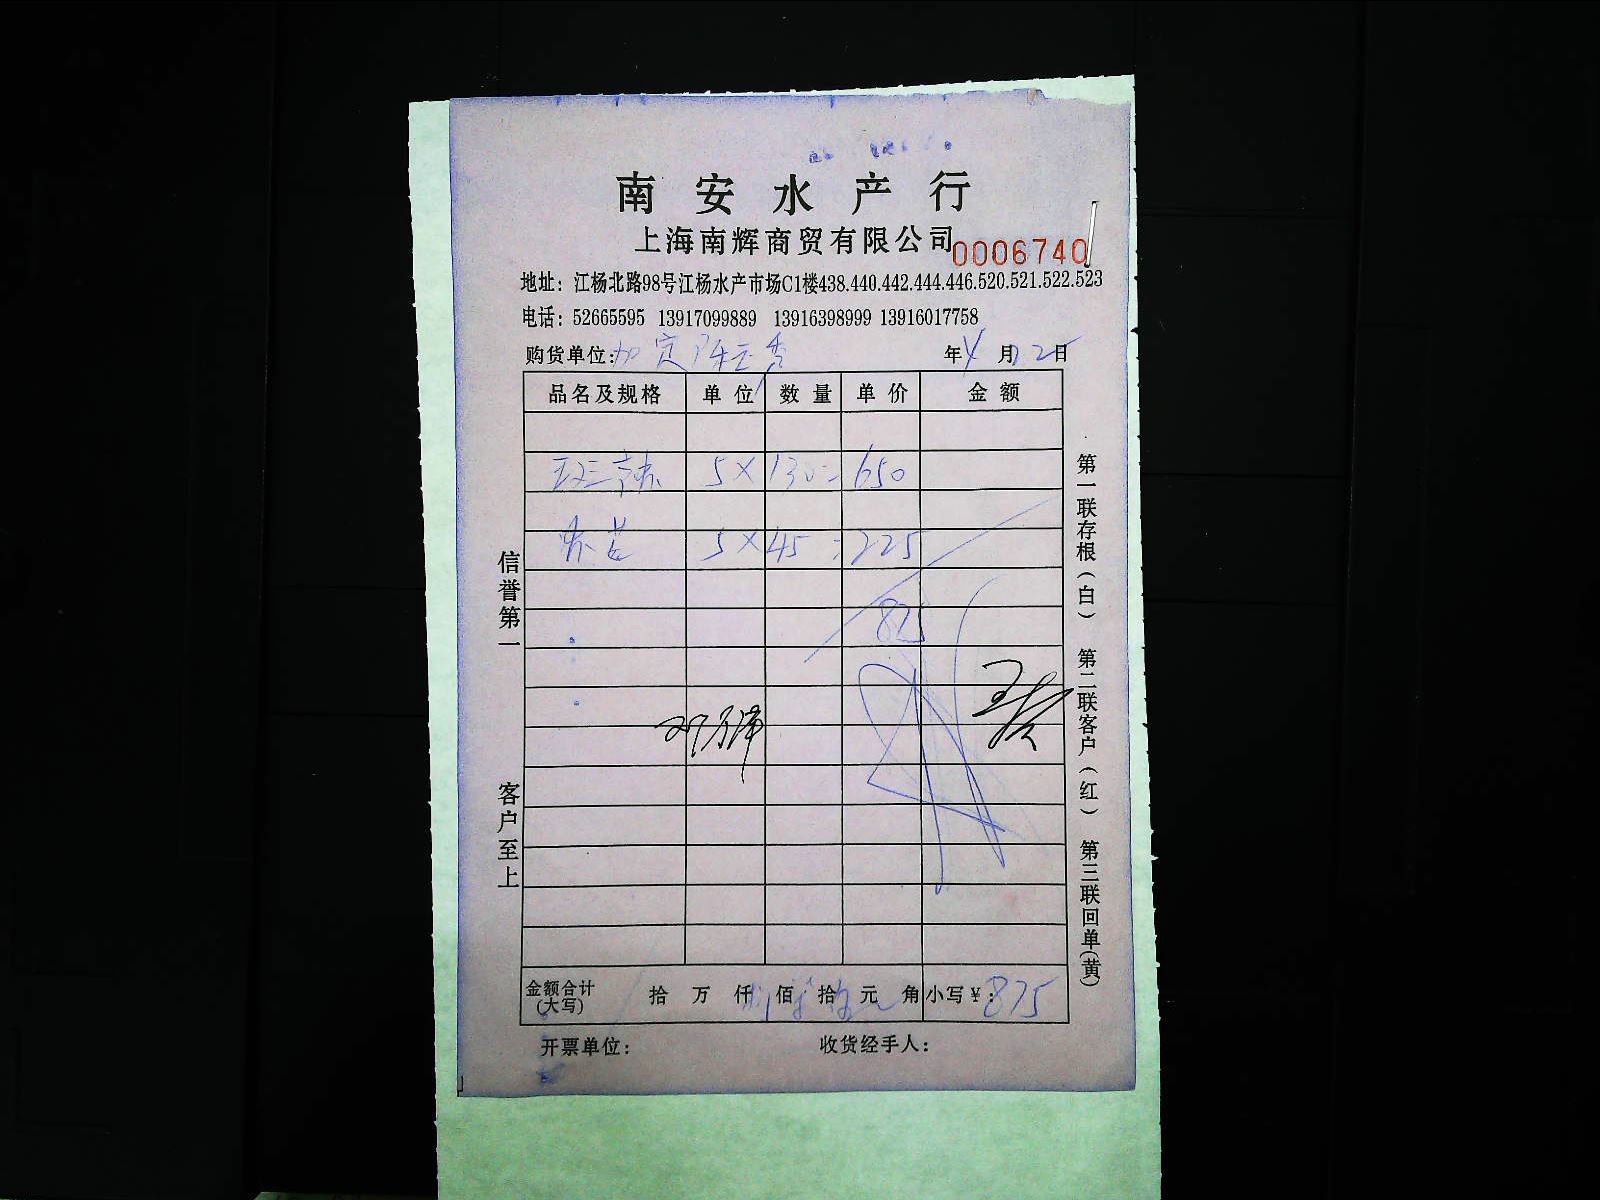 南安水产行
上海南辉商贸有限公司 0006740
地址：江杨北路98号江杨水产市场C1楼438.440.442.444.446.520.521.522.523
电话：52665595 13917099889 13916398999 13916017758
购货单位： 年4月25日
品名及规格 单位 数量 单价 金额
5×130=650
5×45=225
875
信誉第一
客户至上
第一联存根（白） 第二联客户（红） 第三联回单（黄）
金额合计（大写） 拾 万 仟 佰 拾 元 角 小写￥：875
开票单位： 收货经手人：